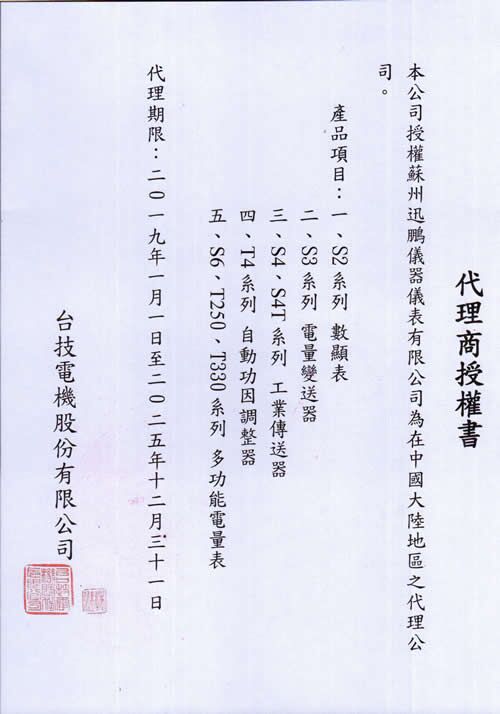 代理商授權書
本公司授權蘇州迅鵬儀器儀表有限公司為在中國大陸地區之代理公
司。
產品項目：一、S2 系列 數顯表
二、S3 系列 電量變送器
三、S4、S4T 系列 工業傳送器
四、T4 系列 自動功因調整器
五、S6、T250、T330 系列 多功能電量表
代理期限：二０一九年一月一日至二０二五年十二月三十一日
台技電機股份有限公司